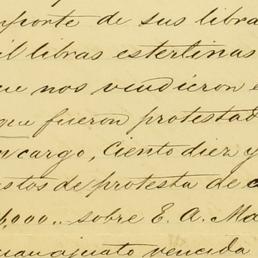 mporte de sus libra
il libras esterlinas
ue nos vendieron e
que fueron protestad
ncargo, Ciento diez y
stos de protesta de c
6,000.. sobre E. A. Ma
uanajuato vencida